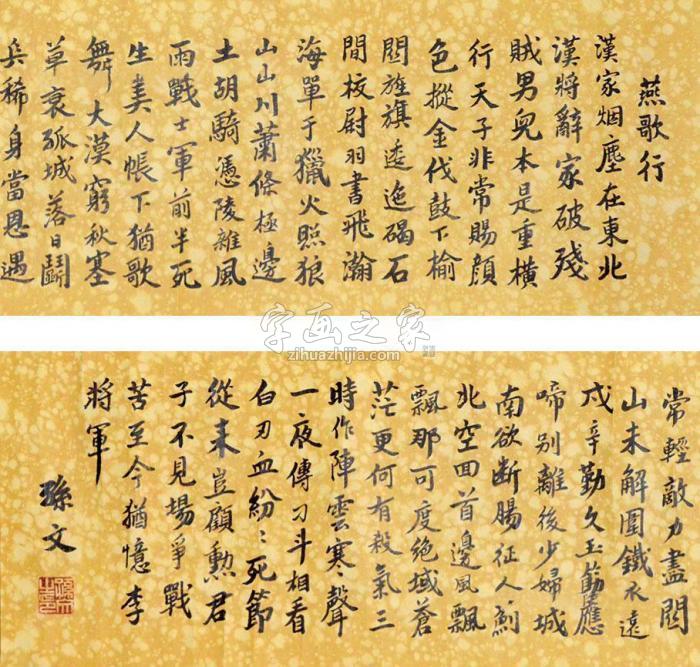 燕歌行
漢家烟塵在東北
漢將辭家破殘
賊男兒本是重橫
行天子非常賜顏
色摐金伐鼓下榆
關旌旗逶迤碣石
間校尉羽書飛瀚
海單于獵火照狼
山山川蕭條極邊
土胡騎憑陵雜風
雨戰士軍前半死
生美人帳下猶歌
舞大漠窮秋塞
草衰孤城落日鬭
兵稀身當恩遇
字画之家
zihuazhijia.com
常輕敵力盡關
山未解圍鐵衣遠
戍辛勤久玉筯應
啼別離後少婦城
南欲斷腸征人薊
北空回首邊風飄
飄那可度絕域蒼
茫更何有殺氣三
時作陣雲寒〻聲
一夜傳刁斗相看
白刃血紛〻死節
從来豈顧勳君
子不見場爭戰
苦至今猶憶李
將軍
孫文